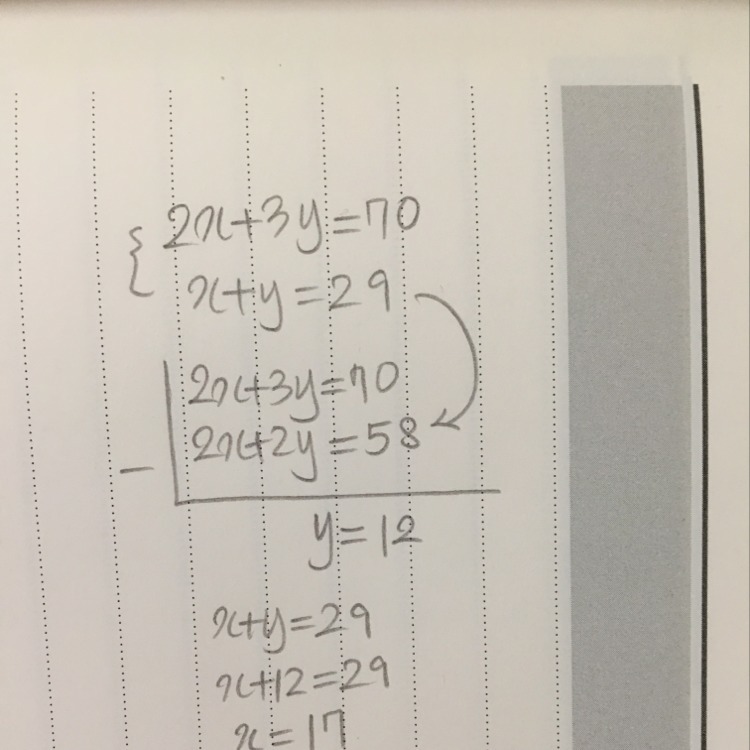 2x+3y=70
x+y=29
2x+3y=70
- 2x+2y=58
y=12
x+y=29
x+12=29
x=17